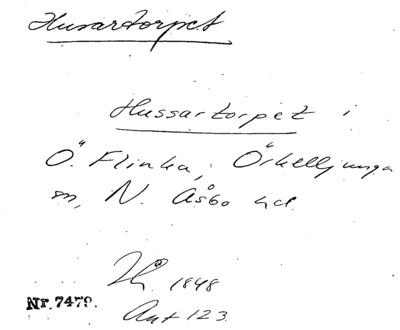 Husartorpet
Hussartorpet i
Ö. Flinka, Örkelljunga
sn, N. Åsbo hd.
1848
Nr. 7479.
Ant 123